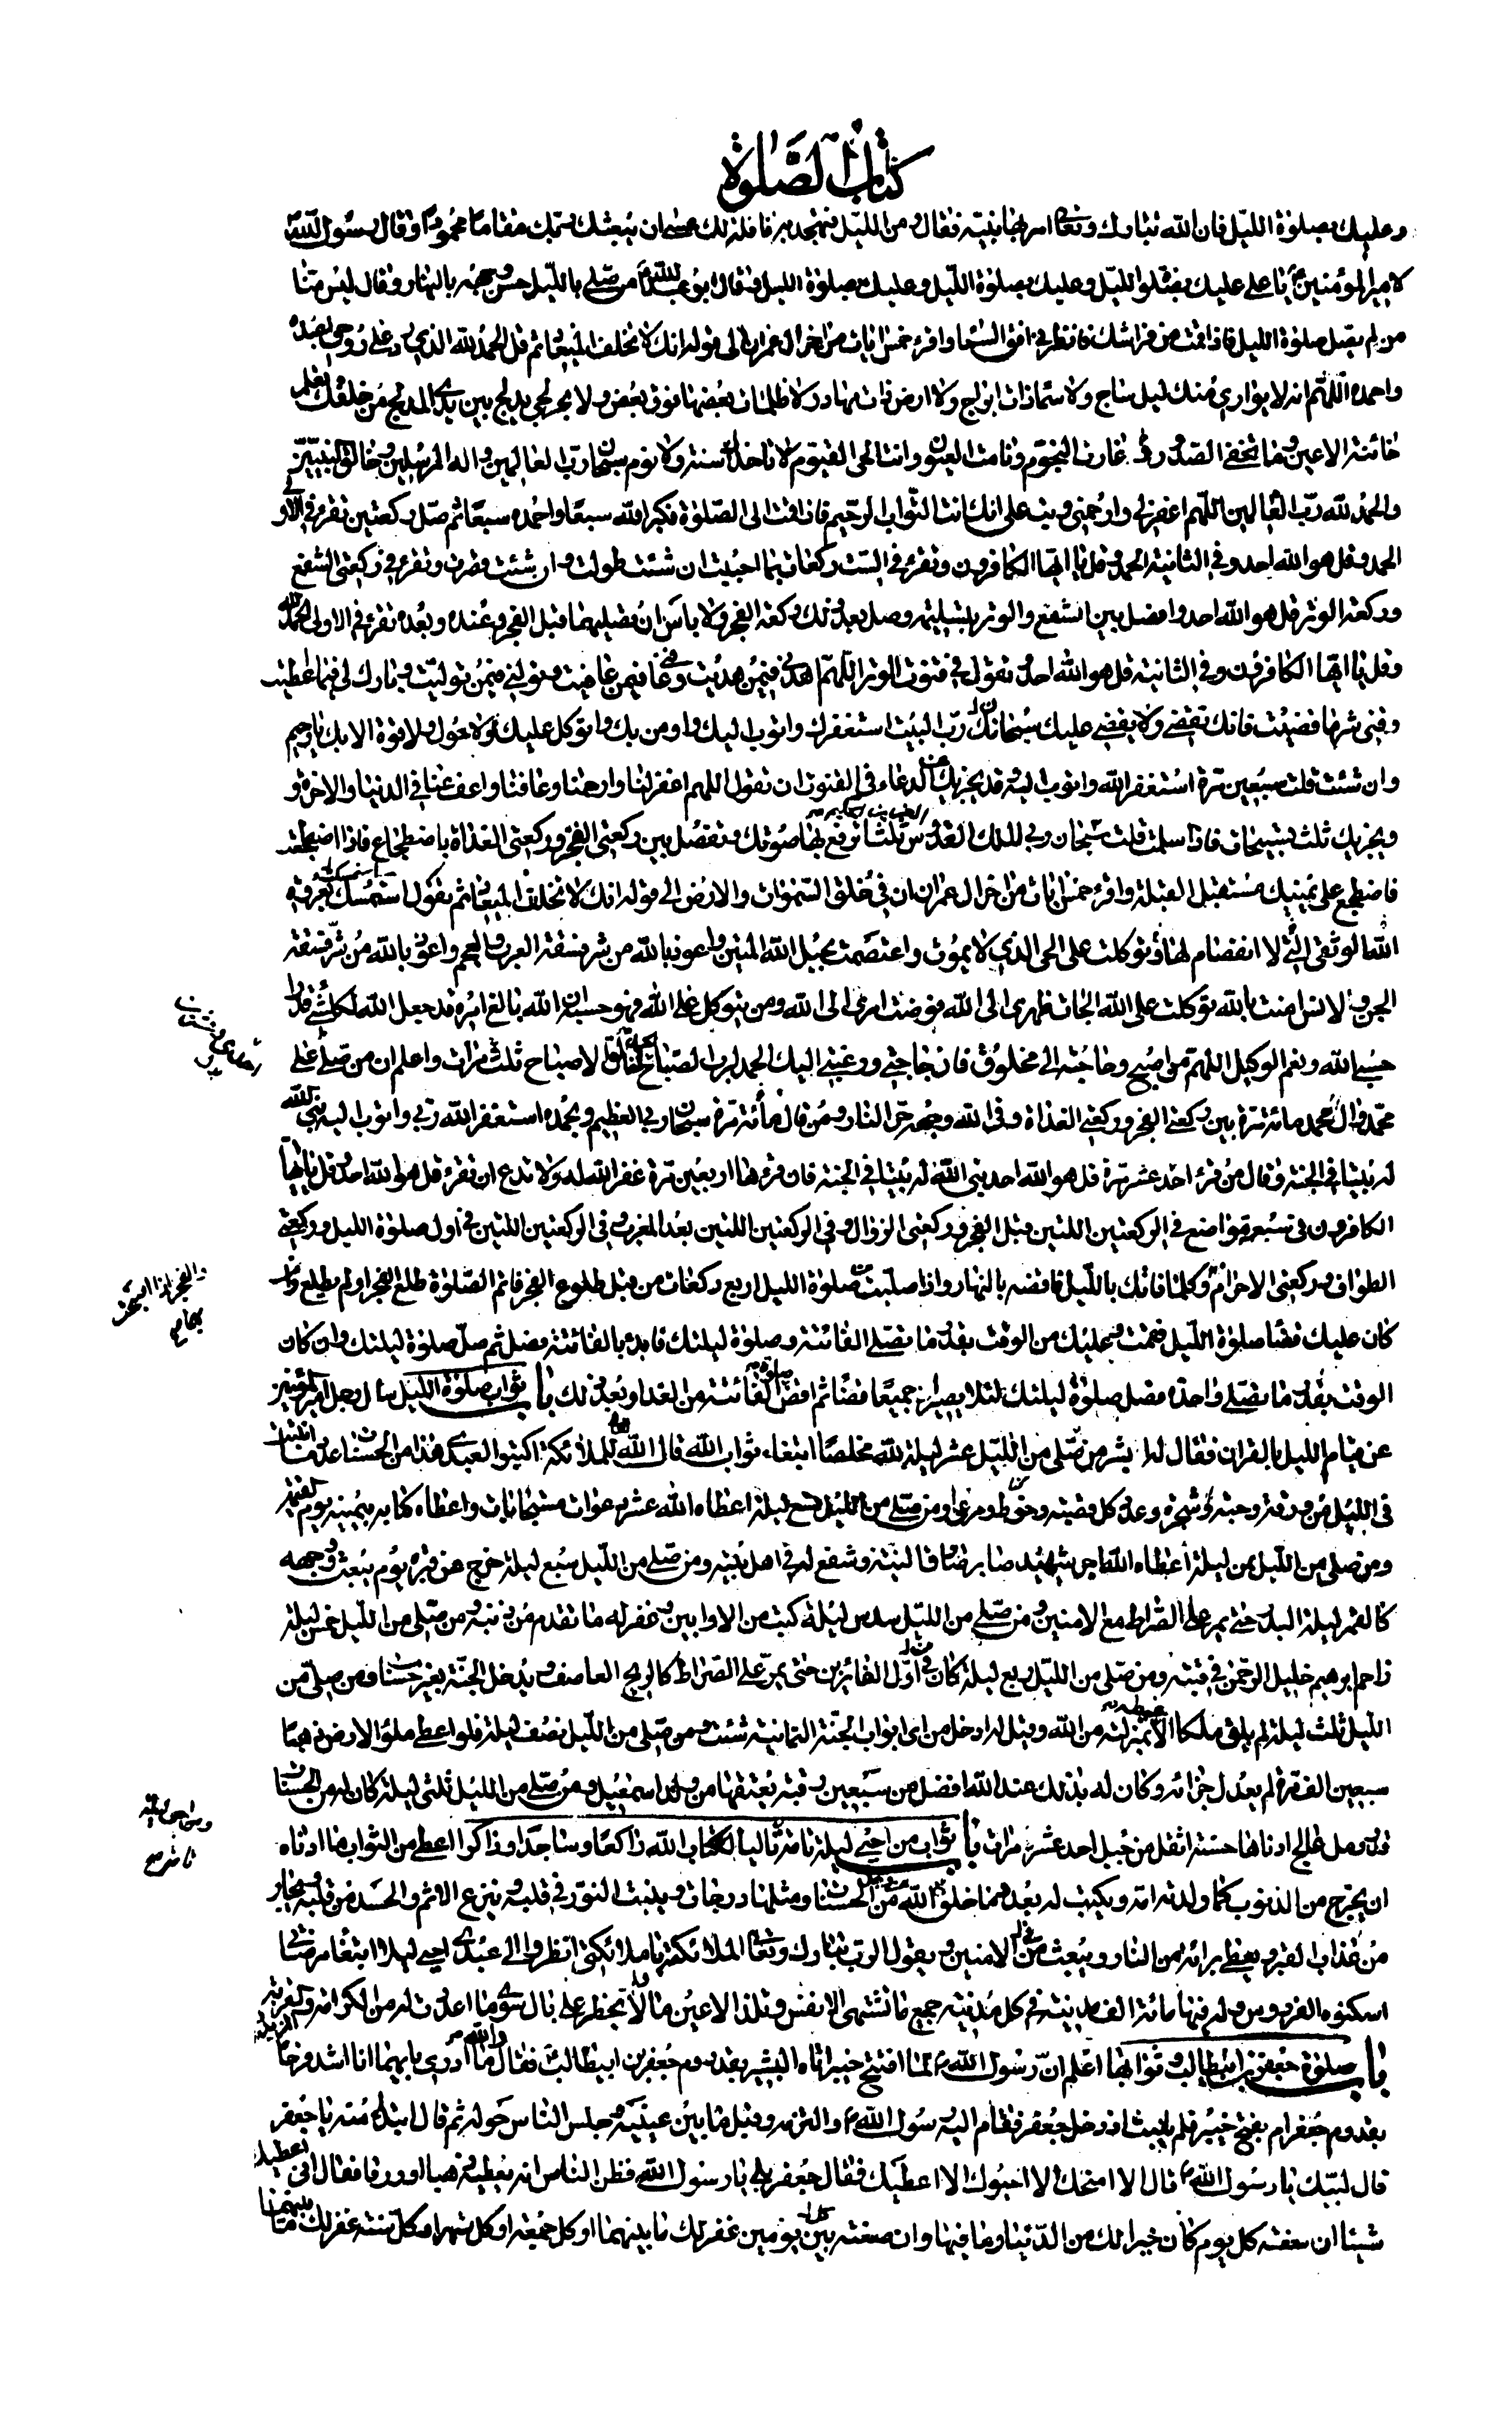 كتاب الصلوة
وعليك بصلوة الليل فان الله تبارك وتعالى امر بها نبيه فقال ومن الليل فتهجد به نافلة لك عسى ان يبعثك ربك مقاما محمودا وقال رسول الله
لامير المؤمنين يا علي عليك بصلوة الليل وعليك بصلوة الليل وعليك بصلوة الليل وقال ابو عبد الله من صلى بالليل حسن وجهه بالنهار وقال ليس منا
من لم يصل صلوة الليل فاذا قمت من فراشك فانظر في افق السماء واقرء خمس ايات من اخر ال عمران الى قوله انك لا تخلف الميعاد ثم قل الحمد لله الذي رد علي روحي اعبده
واحمده اللهم انه لا يواري منك ليل ساج ولا سماء ذات ابراج ولا ارض ذات مهاد ولا ظلمات بعضها فوق بعض ولا بحر لجي يدلج بين يدي المدلج من خلقك تعلم
خائنة الاعين وما تخفي الصدور غارت النجوم ونامت العيون وانت الحي القيوم لا تاخذك سنة ولا نوم سبحان رب العالمين واله المرسلين وخالق النبيين
والحمد لله رب العالمين اللهم اغفر لي وارحمني وتب علي انك انت التواب الرحيم فاذا قمت الى الصلوة فكبر الله سبعا واحمده سبعا ثم صل ركعتين تقرء في الاولى
الحمد وقل هو الله احد وفي الثانية الحمد وقل يا ايها الكافرون وتقرء في الست ركعات بما احببت ان شئت طولت وان شئت قصرت وتقرء في ركعتي الشفع
وركعة الوتر قل هو الله احد وافصل بين الشفع والوتر بتسليمة وصل بعد ذلك ركعتي الفجر ولا باس ان تصليهما قبل الفجر وعنده وبعده تقرء في الاولى الحمد لله
وقل يا ايها الكافرون وفي الثانية قل هو الله احد وتقول في قنوت الوتر اللهم اهدني فيمن هديت وعافني فيمن عافيت وتولني فيمن توليت وبارك لي فيما اعطيت
وقني شر ما قضيت فانك تقضي ولا يقضى عليك سبحانك رب البيت استغفرك واتوب اليك واومن بك واتوكل عليك ولا حول ولا قوة الا بك يا رحيم
وان شئت قلت سبعين مرة استغفر الله واتوب اليه وقد يجزيك عن الدعاء في القنوت ان تقول اللهم اغفر لنا وارحمنا وعافنا واعف عنا في الدنيا والاخرة و
ويجزيك ثلث تسبيحات فاذا سلمت قلت سبحان ربي الملك القدوس ثلثا ترفع بها صوتك وتفصل بين ركعتي الفجر وركعتي الغداة باضطجاع فاذا اضطجعت
فاضطجع على يمينك مستقبل القبلة واقرء خمس ايات من اخر ال عمران ان في خلق السموات والارض الى قوله انك لا تخلف الميعاد ثم تقول استمسكت بعروة
الله الوثقى التي لا انفصام لها وتوكلت على الحي الذي لا يموت واعتصمت بحبل الله المتين واعوذ بالله من شر فسقة العرب والعجم واعوذ بالله من شر فسقة
الجن والانس امنت بالله توكلت على الله الجات ظهري الى الله فوضت امري الى الله ومن يتوكل على الله فهو حسبه ان الله بالغ امره قد جعل الله لكل شيء قدرا
حسبي الله ونعم الوكيل اللهم من اصبح وحاجته الى مخلوق فان حاجتي ورغبتي اليك الحمد لرب الصباح الحمد لفالق الاصباح ثلث مرات واعلم ان من صلى على
محمد وال محمد مائة مرة بين ركعتي الفجر وركعتي الغداة وقى الله وجهه حر النار ومن قال مائة مرة سبحان ربي العظيم وبحمده استغفر الله ربي واتوب اليه بنى الله
له بيتا في الجنة وقال من قرء احد عشر مرة قل هو الله احد بنى الله له بيتا في الجنة فان قرءها اربعين مرة غفر الله له ولا تدع ان تقرء قل هو الله احد وقل يا ايها
الكافرون في سبعة مواضع في الركعتين اللتين قبل الفجر وركعتي الزوال وفي الركعتين اللتين بعد المغرب وفي الركعتين اللتين في اول صلوة الليل وركعتي
الطواف وركعتي الاحرام وكلما فاتك بالليل فاقضه بالنهار واذا صليت من صلوة الليل اربع ركعات من قبل طلوع الفجر فاتم الصلوة طلع الفجر او لم يطلع وان
كان عليك قضاء صلوة الليل فقمت وعليك من الوقت بقدر ما تصلي الفائتة وصلوة ليلتك فابدء بالفائتة فصل ثم صل صلوة ليلتك وان كان
الوقت بقدر ما تصلي واحدة فصل صلوة ليلتك لئلا يصيران جميعا قضاء ثم اقض الصلوة الفائتة من الغد او بعد ذلك باب ثواب صلوة الليل سال رجل امير المؤمنين
عن قيام الليل بالقران فقال له ابشر من صلى من الليل عشر ليلة لله مخلصا ابتغاء ثواب الله قال الله للملائكة اكتبوا لعبدي هذا من الحسنات عدد ما انبتت
في الليل من ورقة وحبة وشجرة وعدد كل قصبة وخوط ومرعى ومن صلى من الليل تسع ليلة اعطاه الله عشر دعوات مستجابات واعطاه كتابه بيمينه يوم القيمة
ومن صلى من الليل ثمن ليلة اعطاه الله اجر شهيد صابر صادق النية وشفع له في اهل بيته ومن صلى من الليل سبع ليلة خرج من قبره يوم يبعث ووجهه
كالقمر ليلة البدر حتى يمر على الصراط مع الامنين ومن صلى من الليل سدس ليلة كتب من الاوابين وغفر له ما تقدم من ذنبه ومن صلى من الليل خمس ليلة
زاحم ابرهيم خليل الرحمن في قبته ومن صلى من الليل ربع ليلة كان في اول الفائزين حتى يمر على الصراط كالريح العاصف ويدخل الجنة بغير حساب ومن صلى من
الليل ثلث ليلة لم يلق ملكا الا غبطه بمنزلته من الله وقيل له ادخل من اي ابواب الجنة الثمانية شئت ومن صلى من الليل نصف ليلة فلو اعطي ملؤ الارض ذهبا
سبعين الف مرة لم يعدل جزائه وكان له بذلك عند الله افضل من سبعين رقبة يعتقها من ولد اسمعيل ومن صلى من الليل ثلثي ليلة كان له من الحسنات
قدر رمل عالج ادناها حسنة اثقل من جبل احد عشر مرات باب ثواب من احيى ليلة تامة تاليا لكتاب الله راكعا وساجدا وذاكرا اعطي من الثواب ما ادناه
ان يخرج من الذنوب كما ولدته امه ويكتب له بعدد ما خلق الله من الحسنات ومثلها درجات ويثبت النور في قلبه وينزع الاثم والحسد من قلبه ويجار
من عذاب القبر ويعطى برائة من النار ويبعث من الامنين ويقول الرب تبارك وتعالى لملائكته يا ملائكتي انظروا الى عبدي احيى ليله ابتغاء مرضاتي
اسكنوه الفردوس وله فيها مائة الف مدينة في كل مدينة جميع ما تشتهي الانفس وتلذ الاعين وما لا يخطر على بال سوى ما اعددت له من الكرامة والقربة والمزيد
باب صلوة جعفر بن ابيطالب وثوابها اعلم ان رسول الله لما افتتح خيبر اتاه البشير بقدوم جعفر بن ابيطالب فقال والله ما ادري بايهما انا اشد فرحا
بقدوم جعفر ام بفتح خيبر فلم يلبث ان دخل جعفر فقام اليه رسول الله والتزمه وقبل ما بين عينيه وجلس الناس حوله ثم قال ابتداء منه يا جعفر
قال لبيك يا رسول الله قال الا امنحك الا احبوك الا اعطيك فقال جعفر بلى يا رسول الله فظن الناس انه يعطيه ذهبا او ورقا فقال اني اعطيك
شيئا ان صنعته كل يوم كان خيرا لك من الدنيا وما فيها وان صنعته بين كل يومين غفر لك ما بينهما او كل جمعة او كل شهر او كل سنة غفر لك ما بينهما